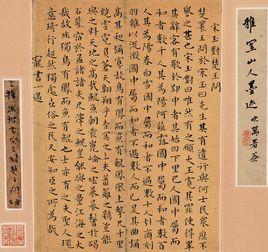 雅宜山人墨迹
宋玉對楚王問
楚襄王問於宋玉曰先生其有遺行與何士民眾庶不
譽之甚也宋玉對曰唯然有之願大王寬其罪使得畢
其辭客有歌於郢中者其始曰下里巴人國中屬而
和者數千人其為陽阿薤露國中屬而和者數百人
其為陽春白雪國中屬而和者不過數十人引商刻
羽雜以流徵國中屬而和者不過數人而已是其曲彌
高其和彌寡故鳥有鳳而魚有鯤鳳凰上擊九千里
絕雲霓負蒼天翱翔乎杳冥之上夫蕃籬之鷃豈能
與之料天地之高哉鯤魚朝發崑崙之墟暴鬐於碣
石暮宿於孟諸夫尺澤之鯢豈能與之量江海之大
哉故非獨鳥有鳳而魚有鯤也士亦有之夫聖人瑰
意琦行超然獨處世俗之民又安知臣之所為哉
寵書一過